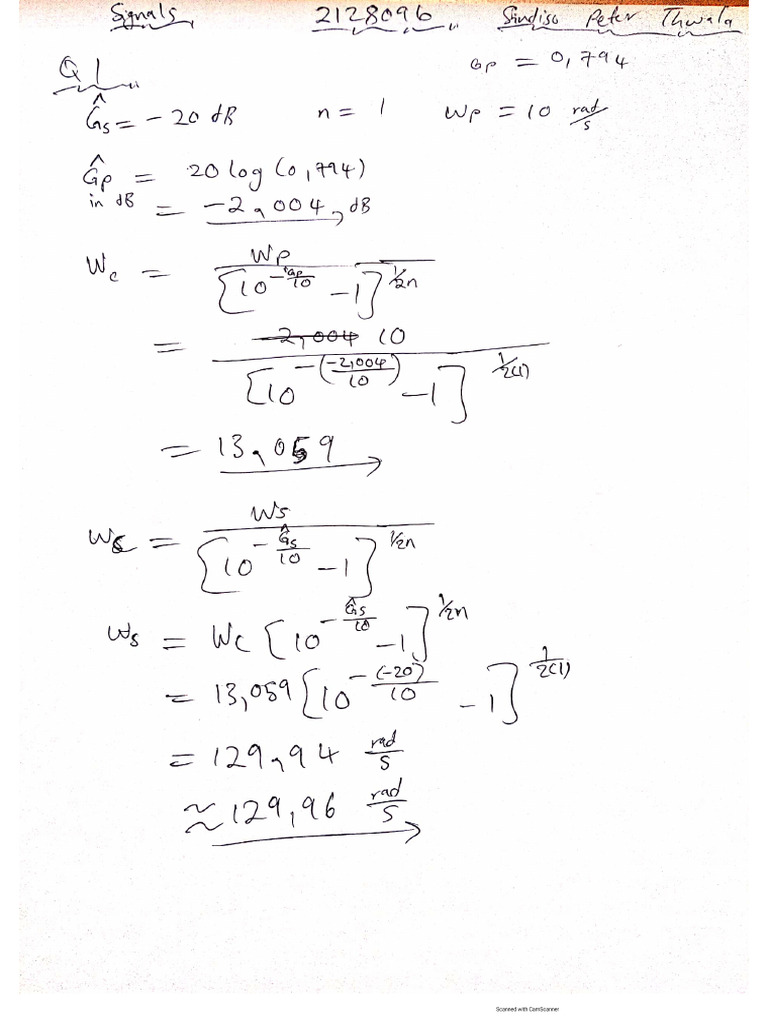 Signals 2128096 Sindiso Peter Thwala
Q1 Gp = 0,794
Ĝs = -20 dB n = 1 Wp = 10 rad/s
Ĝp in dB = 20 log (0,794)
= -2,004, dB
Wc = Wp / [10^(-Ĝp/10) - 1]^(1/2n)
= -2,004 10 / [10^(-(-2,004/10)) - 1]^(1/2(1))
= 13,059
Wc = Ws / [10^(-Ĝs/10) - 1]^(1/2n)
Ws = Wc [10^(-Ĝs/10) - 1]^(1/2n)
= 13,059 [10^(-(-20)/10) - 1]^(1/2(1))
= 129,94 rad/s
≈ 129,96 rad/s
Scanned with CamScanner